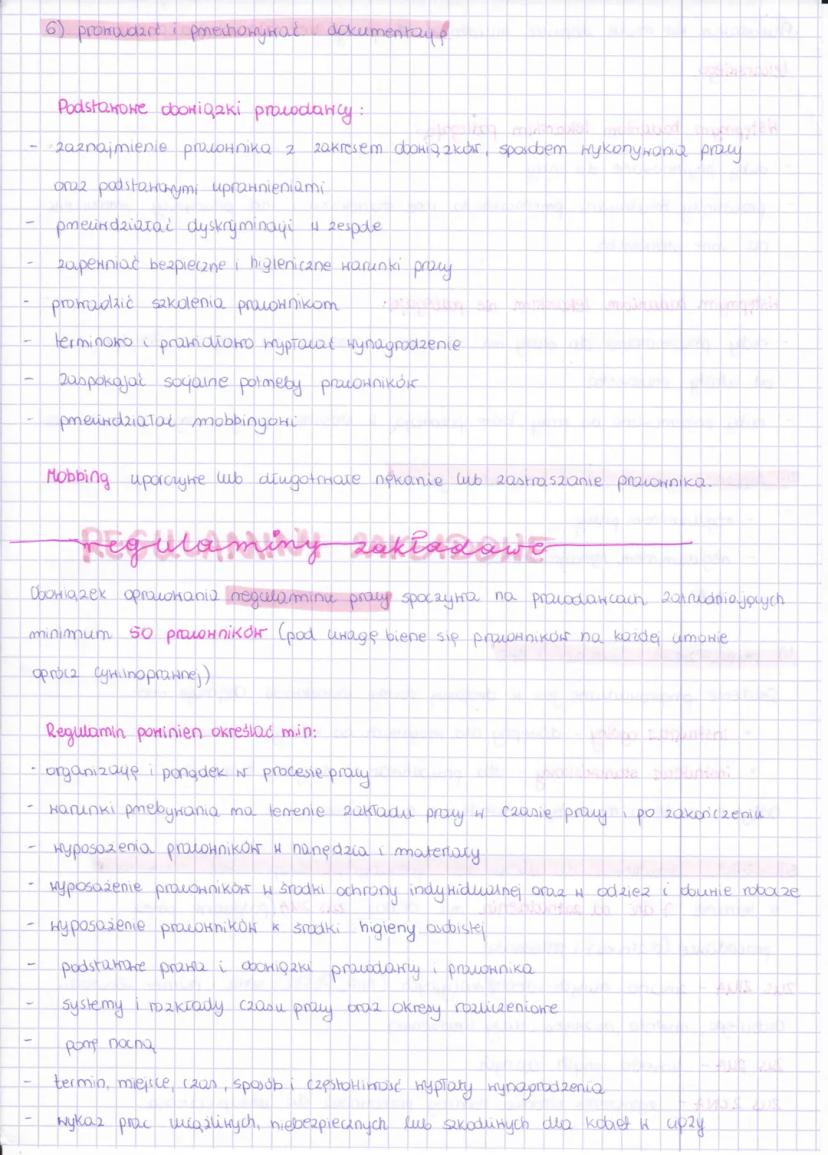 6) prowadzić i przechowywać dokumentację
Podstawowe obowiązki pracodawcy:
- zaznajmienie pracownika z zakresem obowiązków, sposobem wykonywania pracy
oraz podstawowymi uprawnieniami
- przeciwdziałać dyskryminacji w zespole
- zapewniać bezpieczne i higieniczne warunki pracy
- prowadzić szkolenia pracownikom
- terminowo i prawidłowo wypłacać wynagrodzenie
- zaspokajać socjalne potrzeby pracowników
- przeciwdziałać mobbingowi
Mobbing uporczywe lub długotrwałe nękanie lub zastraszanie pracownika.
regulaminy zakładowe
Obowiązek opracowania regulaminu pracy spoczywa na pracodawcach zatrudniających
minimum 50 pracowników (pod uwagę bierze się pracowników na każdej umowie
oprócz cywilnoprawnej)
Regulamin powinien określać min:
- organizację i porządek w procesie pracy
- warunki przebywania ma terenie zakładu pracy w czasie pracy i po zakończeniu
- wyposażenia pracowników w narzędzia i materiały
- wyposażenie pracowników w środki ochrony indywidualnej oraz w odzież i obuwie robocze
- wyposażenie pracowników w środki higieny osobistej
- podstawowe prawa i obowiązki pracodawcy i pracownika
- systemy i rozkłady czasu pracy oraz okresy rozliczeniowe
- porę nocną
- termin, miejsce, czas, sposób i częstotliwość wypłaty wynagrodzenia
- wykaz prac uciążliwych, niebezpiecznych lub szkodliwych dla kobiet w ciąży